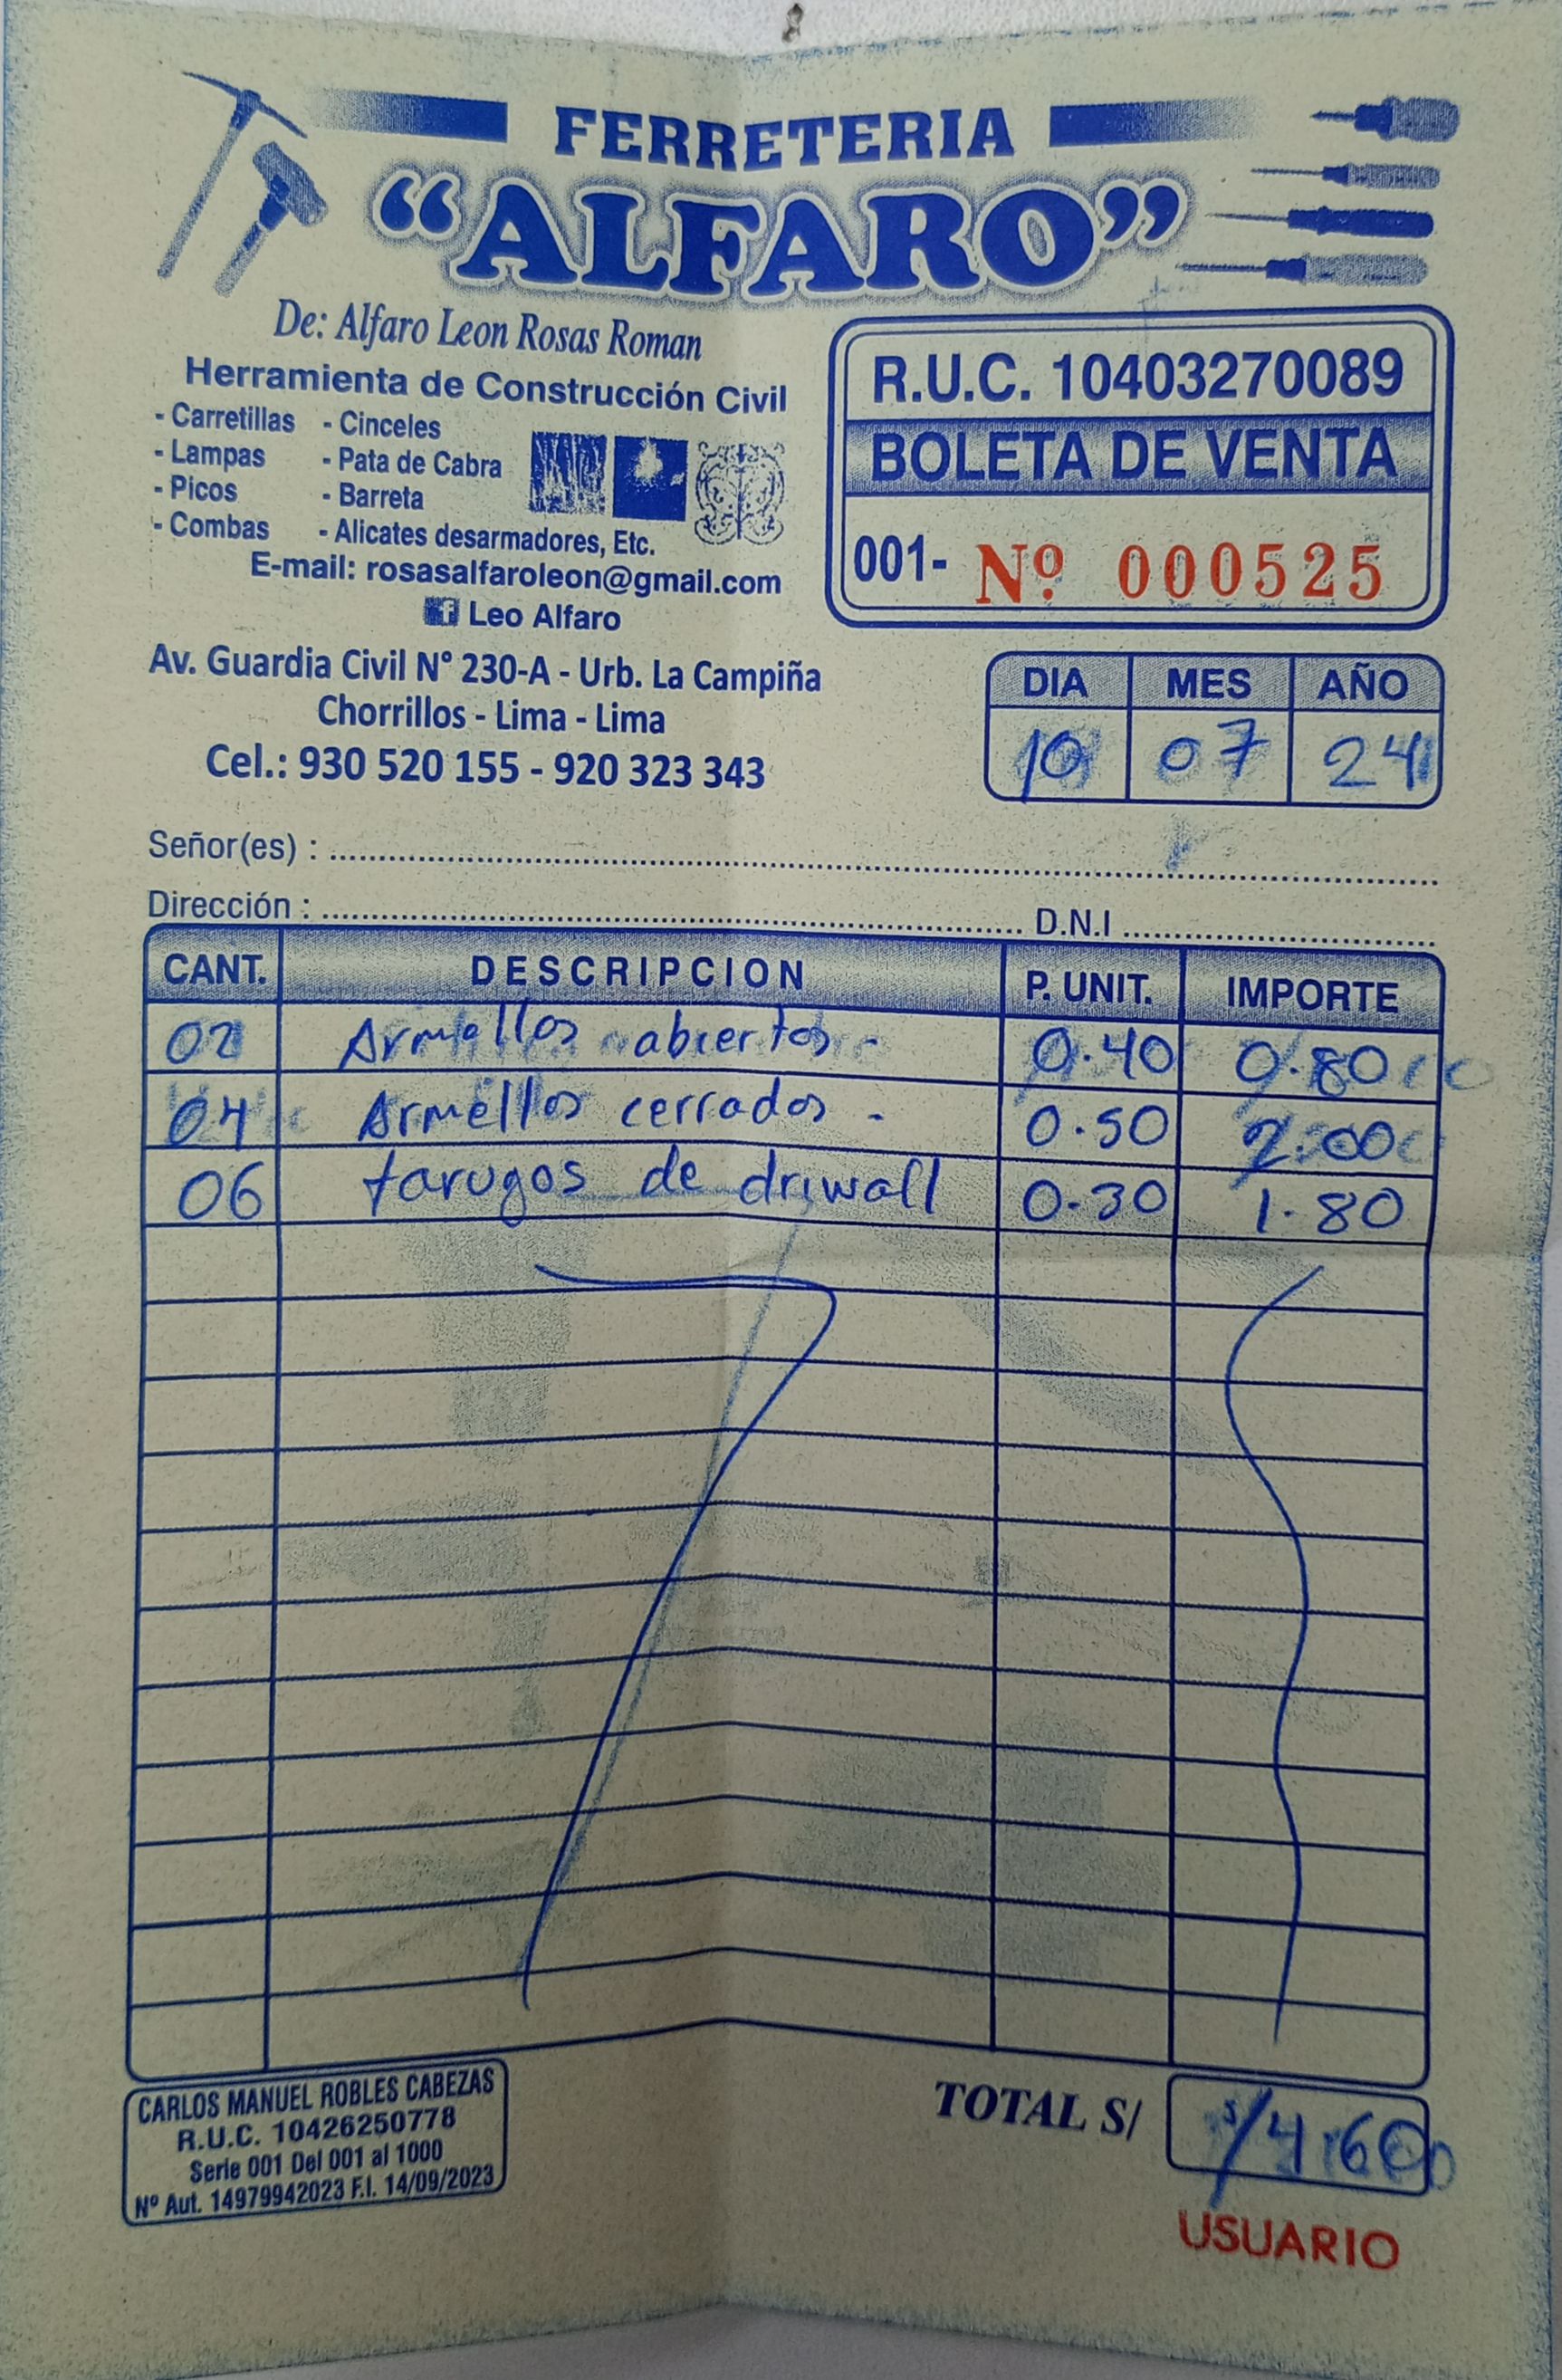 FERRETERIA
“ALFARO”
De: Alfaro Leon Rosas Roman
Herramienta de Construcción Civil
- Carretillas - Cinceles
- Lampas - Pata de Cabra
- Picos - Barreta
- Combas - Alicates desarmadores, Etc.
E-mail: rosasalfaroleon@gmail.com
Leo Alfaro
Av. Guardia Civil N° 230-A - Urb. La Campiña
Chorrillos - Lima - Lima
Cel.: 930 520 155 - 920 323 343
R.U.C. 10403270089
BOLETA DE VENTA
001- Nº. 000525
DIA MES AÑO
10 07 24
Señor(es) :
Dirección : D.N.I
CANT. DESCRIPCION P. UNIT. IMPORTE
02 Armellos abiertos - 0.40 0.80
04 Armellos cerrados - 0.50 2.00
06 tarugos de driwall 0.30 1.80
CARLOS MANUEL ROBLES CABEZAS
R.U.C. 10426250778
Serie 001 Del 001 al 1000
Nº Aut. 14979942023 F.I. 14/09/2023
TOTAL S/ s/4.60
USUARIO